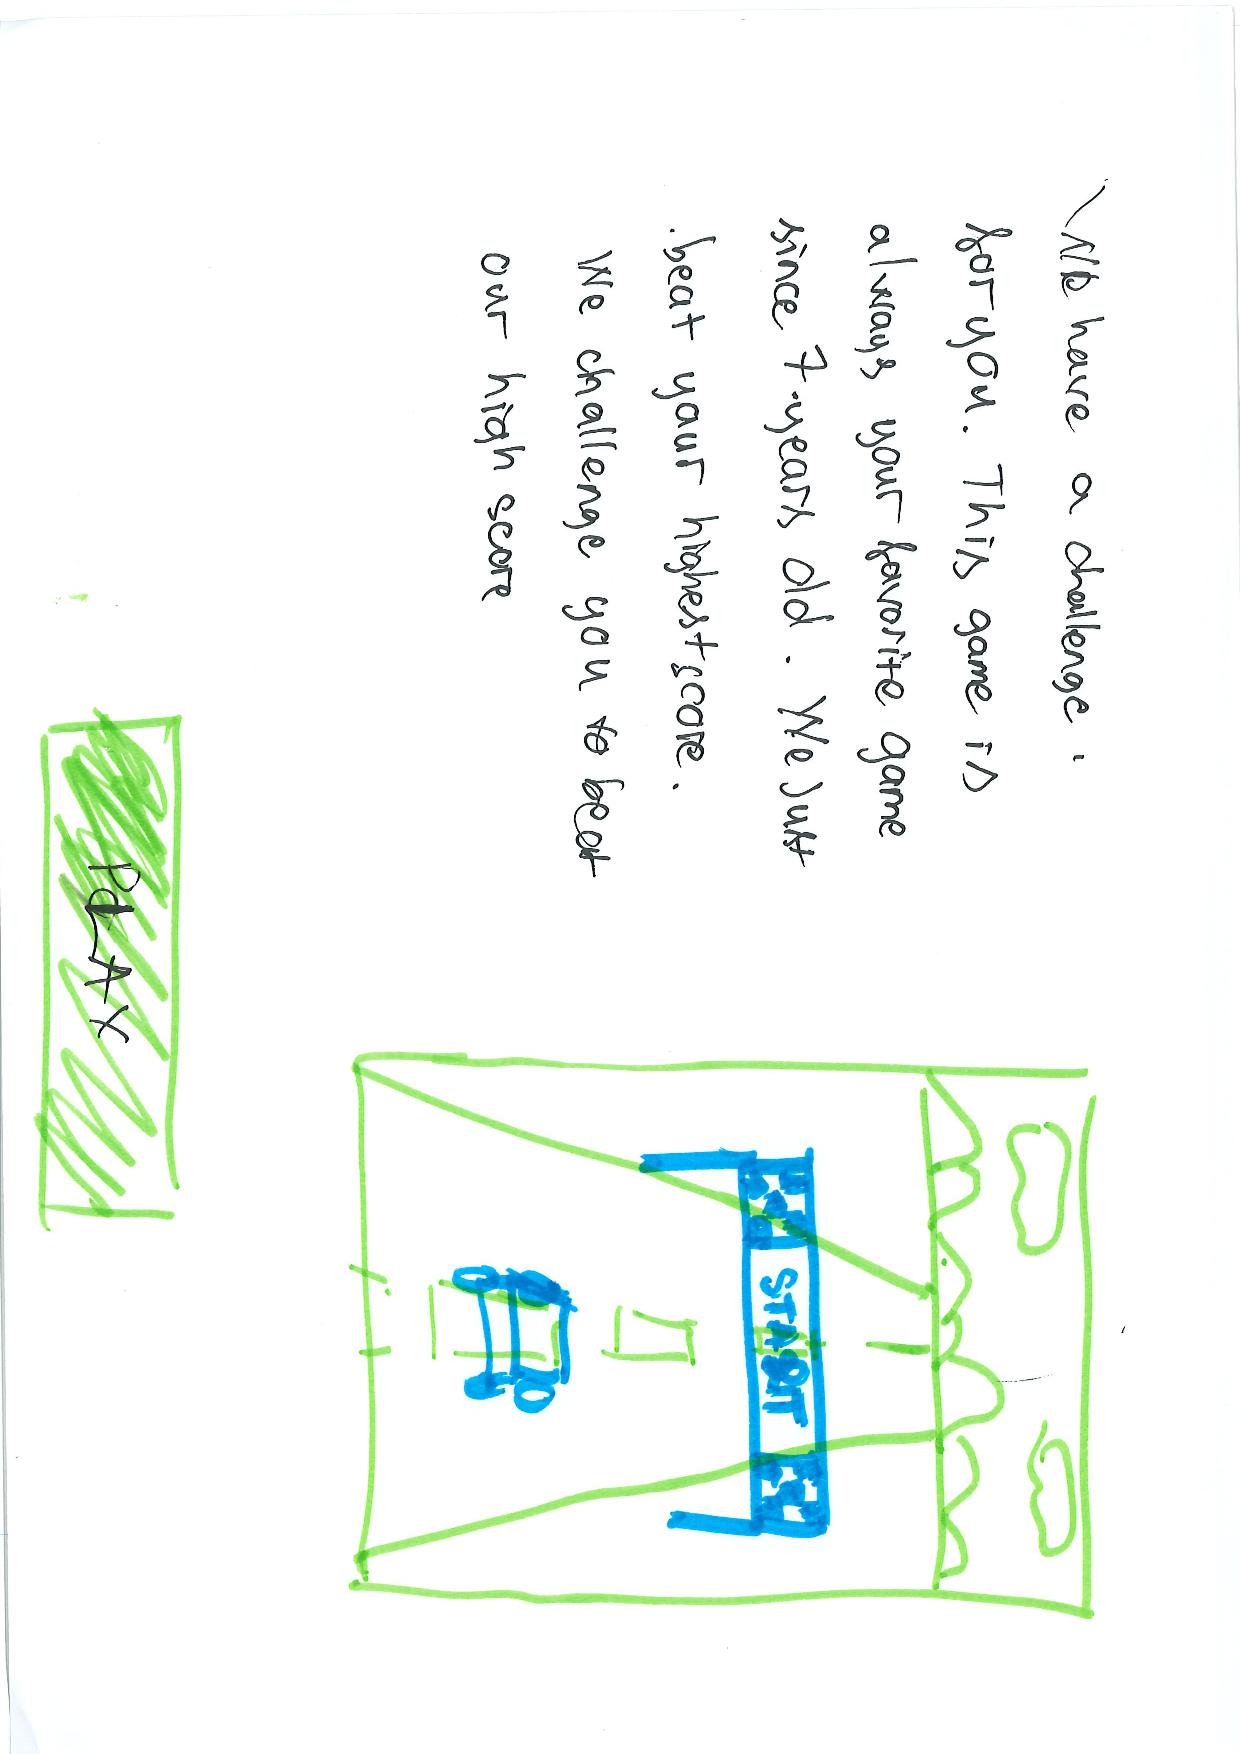 We have a challenge.
for you. This game is
always your favorite game
since 7-years old. We Just
beat your highest score.
We challenge you to beat
our high score
START
PLAY